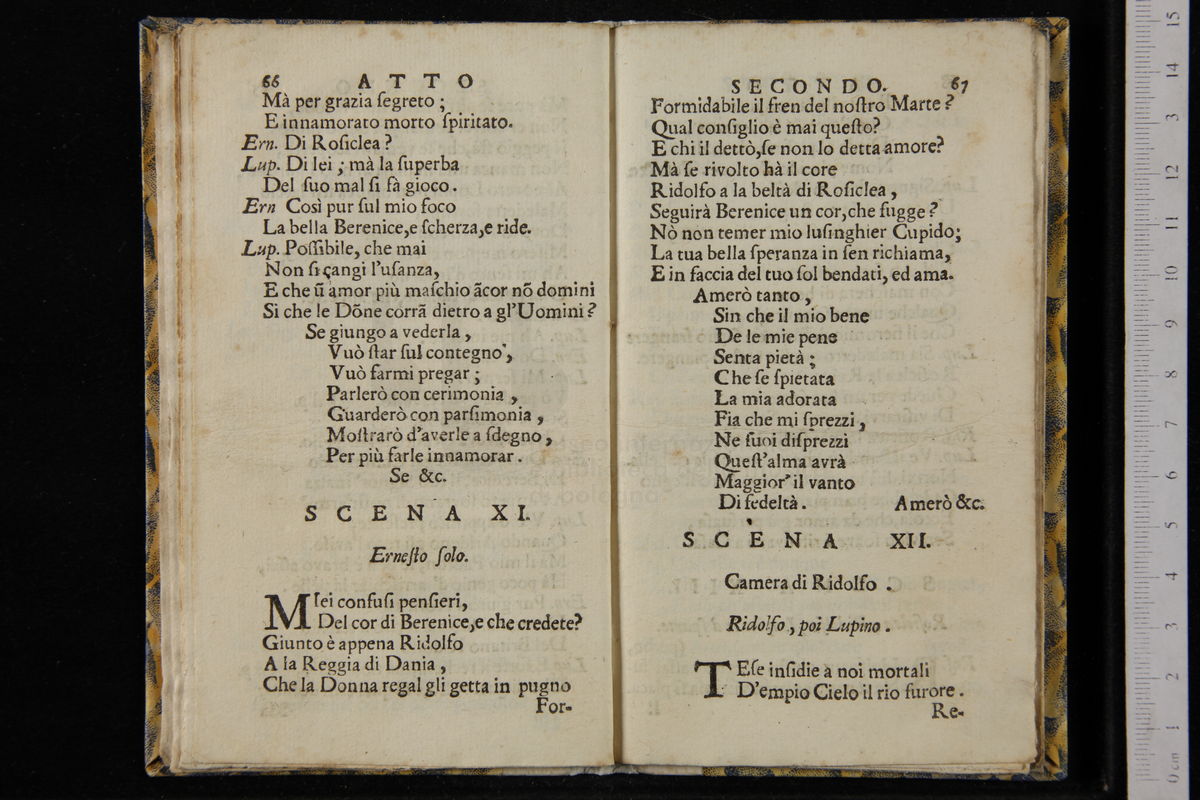 66 ATTO
Mà per grazia ſegreto ;
E innamorato morto ſpiritato.
Ern. Di Roſiclea ?
Lup. Di lei ; mà la ſuperba
Del ſuo mal ſi fà gioco .
Ern Così pur ſul mio foco
La bella Berenice,e ſcherza,e ride.
Lup. Poſſibile, che mai
Non ſi çangi l'uſanza,
E che ũ amor più maſchio ãcor nõ domini
Si che le Dõne corrã dietro a gl'Uomini ?
Se giungo a vederla ,
Vuò ſtar ſul contegno ,
Vuò farmi pregar ;
Parlerò con cerimonia ,
Guarderò con parſimonia ,
Moſtrarò d'averle a ſdegno ,
Per più farle innamorar .
Se &c.
SCENA XI.
Erneſto ſolo.
MIei confuſi penſieri,
Del cor di Berenice,e che credete?
Giunto è appena Ridolfo
A la Reggia di Dania ,
Che la Donna regal gli getta in pugno
For-
SECONDO. 67
Formidabile il fren del noſtro Marte ?
Qual conſiglio è mai queſto?
E chi il dettò,ſe non lo detta amore?
Mà ſe rivolto hà il core
Ridolfo a la beltà di Roſiclea ,
Seguirà Berenice un cor,che fugge ?
Nò non temer mio luſinghier Cupido;
La tua bella ſperanza in ſen richiama,
E in faccia del tuo ſol bendati, ed ama.
Amerò tanto ,
Sin che il mio bene
De le mie pene
Senta pietà ;
Che ſe ſpietata
La mia adorata
Fia che mi ſprezzi ,
Ne ſuoi diſprezzi
Queſt'alma avrà
Maggior il vanto
Di fedeltà . Amerò &c.
SCENA XII.
Camera di Ridolfo .
Ridolfo , poi Lupino .
TEſe inſidie a noi mortali
D'empio Cielo il rio furore .
Re-
15
14
3
12
11
10
9
8
7
6
5
4
3
2
1
0 cm